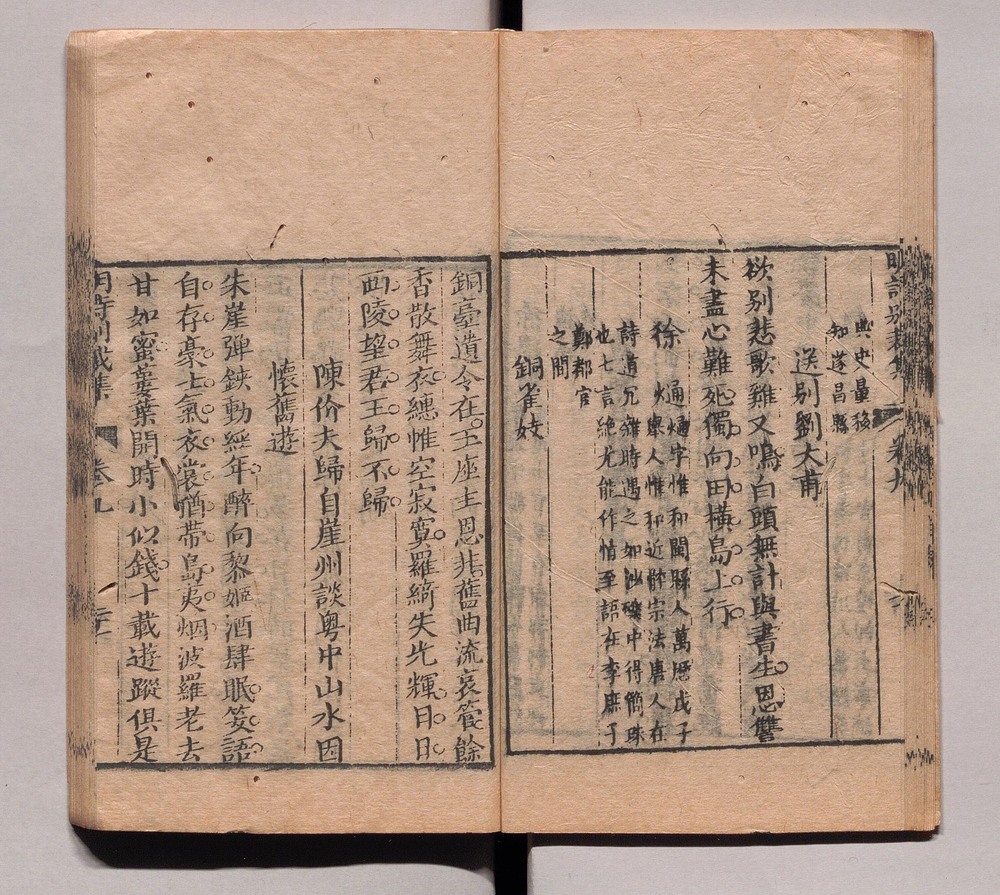 典史量移
知遂昌縣
送別劉大甫
欲別悲歌難又鳴白頭無計與書生恩讐
未盡心難死獨向田橫島上行
徐
通　字惟和閩縣人萬厯戊子
舉人惟和近體宗法唐人在
詩道冗雜時遇之如沙礫中得簡珠
也七言絶尤能作情至語在李庶子
鄭都官
之間
銅雀妓
銅臺遺令在玉座主恩非舊曲流哀管餘
香散舞衣繐惟空寂寞羅綺失光輝日日
西陵望君王歸不歸
陳价夫歸自崖州談粤中山水因
懷舊遊
朱崖彈鋏動經年醉向黎姬酒肆眠笑語
自存豪士氣衣裳猶帶島夷烟波羅老去
甘如蜜蔞葉開時小似錢十載遊蹤俱是
明詩別裁集
卷九